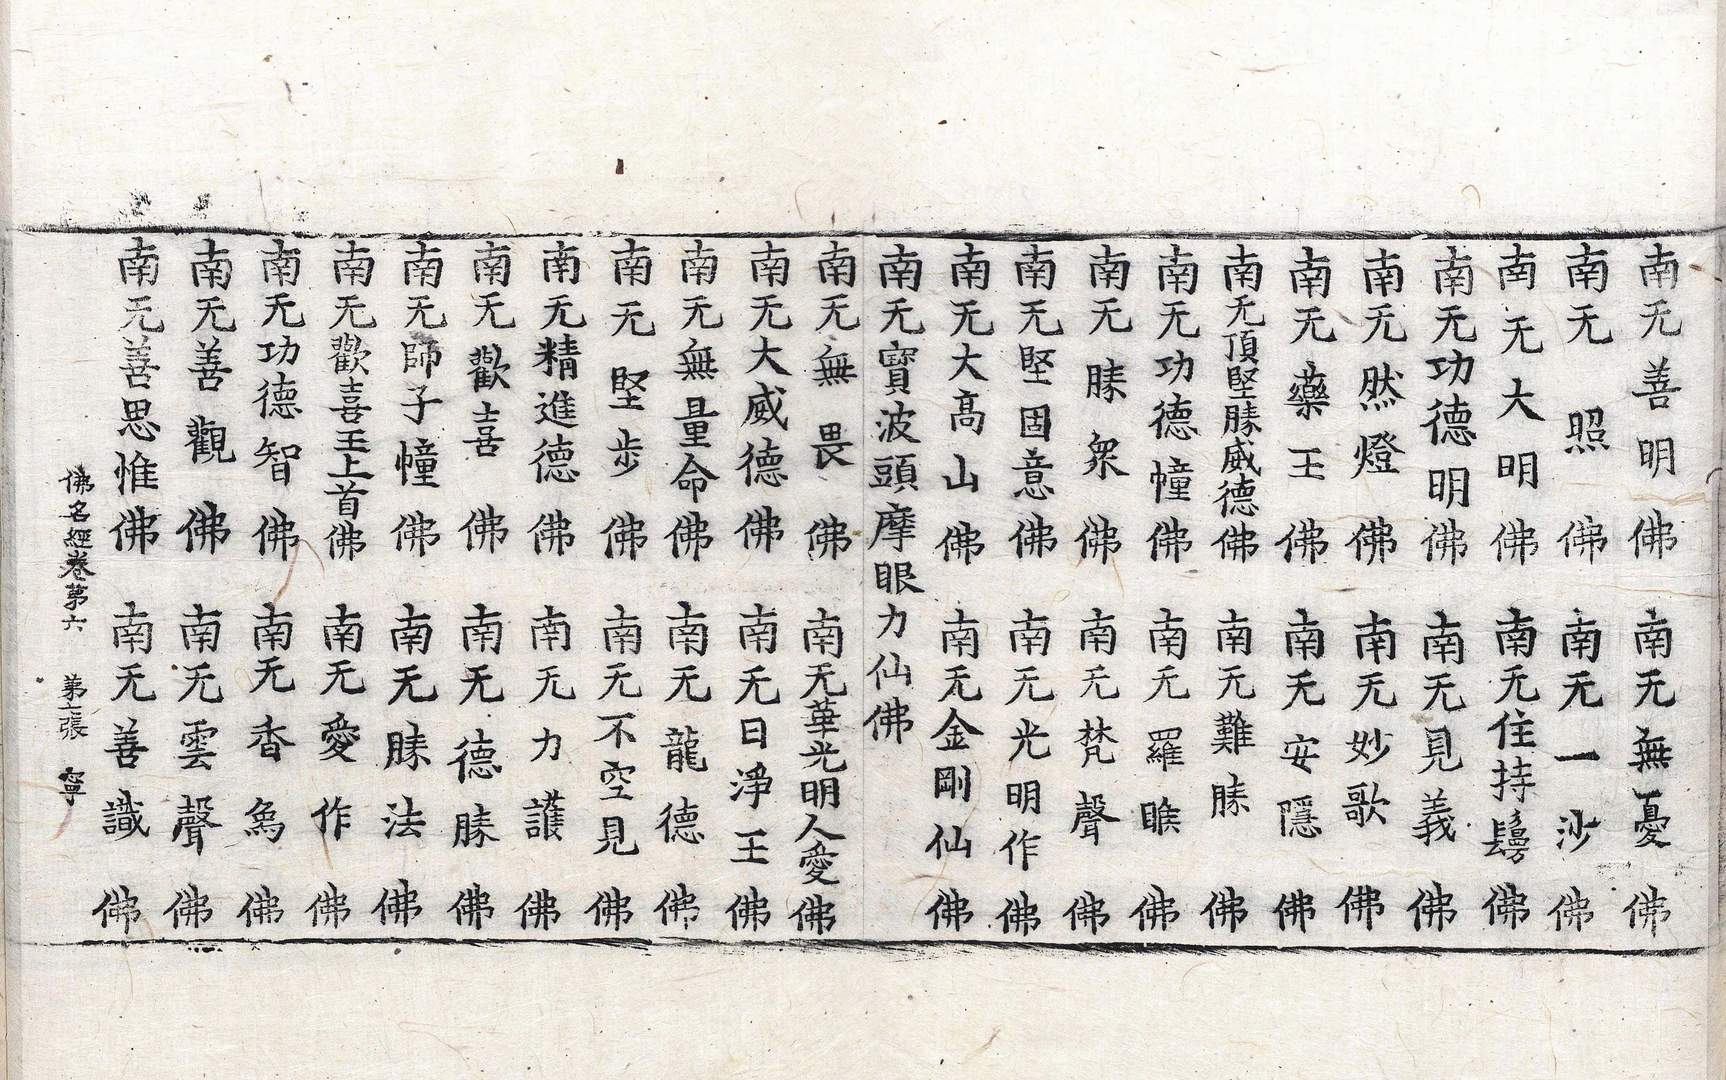 南无善明佛 南无無憂佛
南无照佛 南无一沙佛
南无大明佛 南无住持鬘佛
南无功德明佛 南无見義佛
南无然燈佛 南无妙歌佛
南无藥王佛 南无安隱佛
南无頂堅勝威德佛 南无難勝佛
南无功德幢佛 南无羅睺佛
南无勝衆佛 南无梵聲佛
南无堅固意佛 南无光明作佛
南无大高山佛 南无金剛仙佛
南无寶波頭摩眼力仙佛
南无無畏佛 南无華光明人愛佛
南无大威德佛 南无日淨王佛
南无無量命佛 南无龍德佛
南无堅步佛 南无不空見佛
南无精進德佛 南无力護佛
南无歡喜佛 南无德勝佛
南无師子幢佛 南无勝法佛
南无歡喜王上首佛 南无愛作佛
南无功德智佛 南无香爲佛
南无善觀佛 南无雲聲佛
南无善思惟佛 南无善識佛
佛名經卷第六 第 張